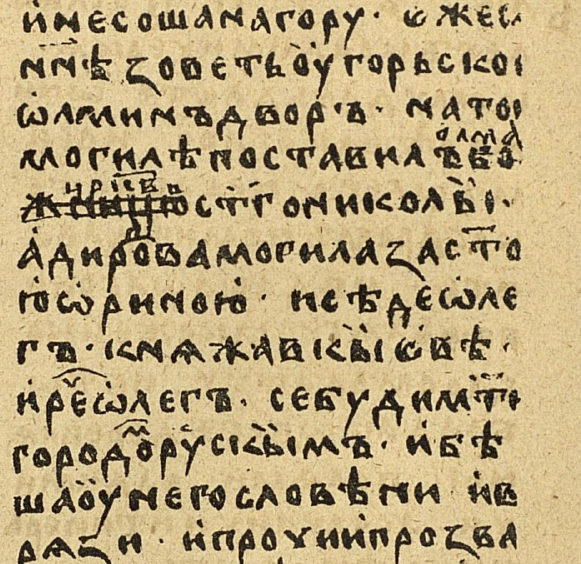 инесошанагору · ежес
ннѣзоветьоугорьскоі
ѡлминъдворъ · натоі
могилѣпоставилъ олма бо
црквь стгониколы ·
адировамогилазасто
юѡриною · исѣдеѡле
гъ · кнѧжавкыевѣ ·
ирⷱ҇еѡлегъ · себудимт҃и
городомъ рускымъ · ибѣ
шаоунегословѣни ив
рѧзи · ипрочиипрозва